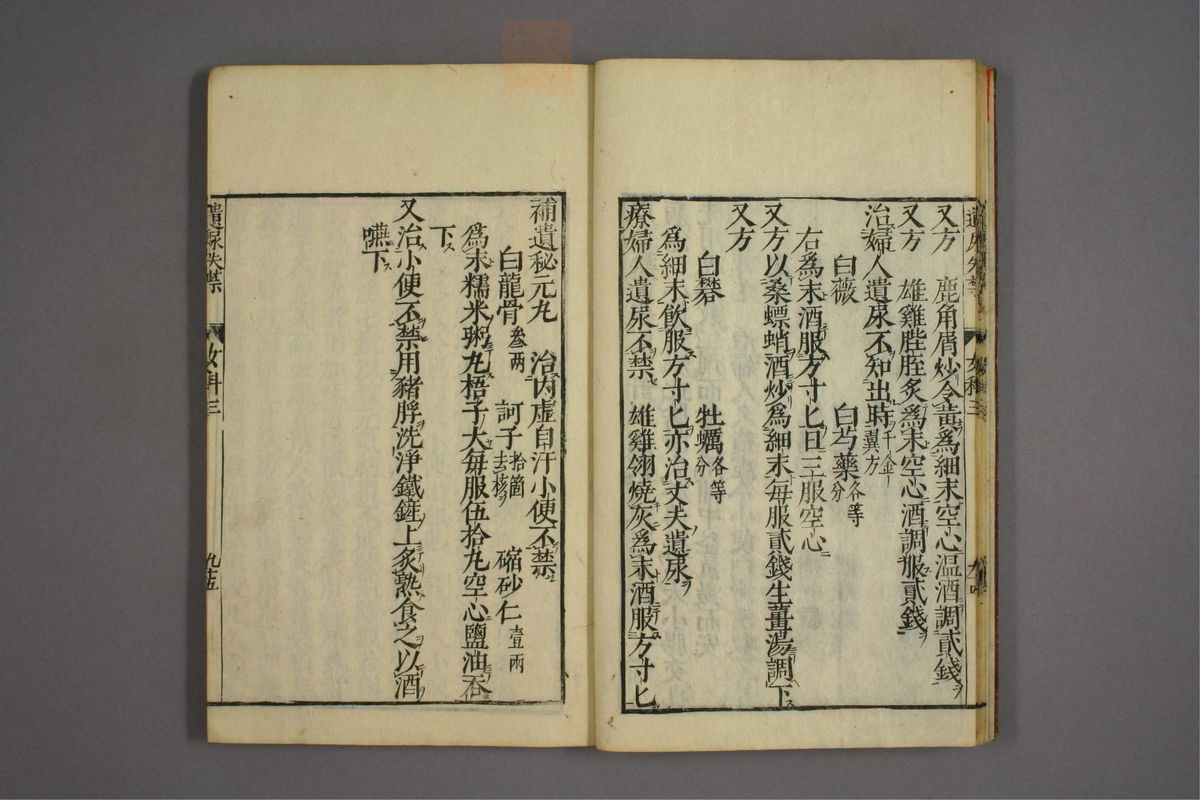 又方　鹿角屑炒令黃爲細末空心温酒調貳錢
又方　雄雞䏶胵炙爲末空心酒調服貳錢
治婦人遺尿不知出時千金翼方
白薇　白芍藥各等分
右爲末酒服方寸匕日三服空心
又方以桑螵蛸酒炒爲細末每服貳錢生薑湯調下
又方
白礬　牡蠣各等分
爲細末飲服方寸匕亦治丈夫遺尿
療婦人遺尿不禁　雄雞翎燒灰爲末酒服方寸匕
補遺秘元丸　治内虛自汗小便不禁
白龍骨叁兩　訶子拾箇去核　縮砂仁壹兩
爲末糯米粥丸梧子大每服伍拾丸空心鹽油吞
下
又治小便不禁用豬脬洗淨鐵鏟上炙熟食之以酒
嚥下
遺尿失禁　女科三　九十五